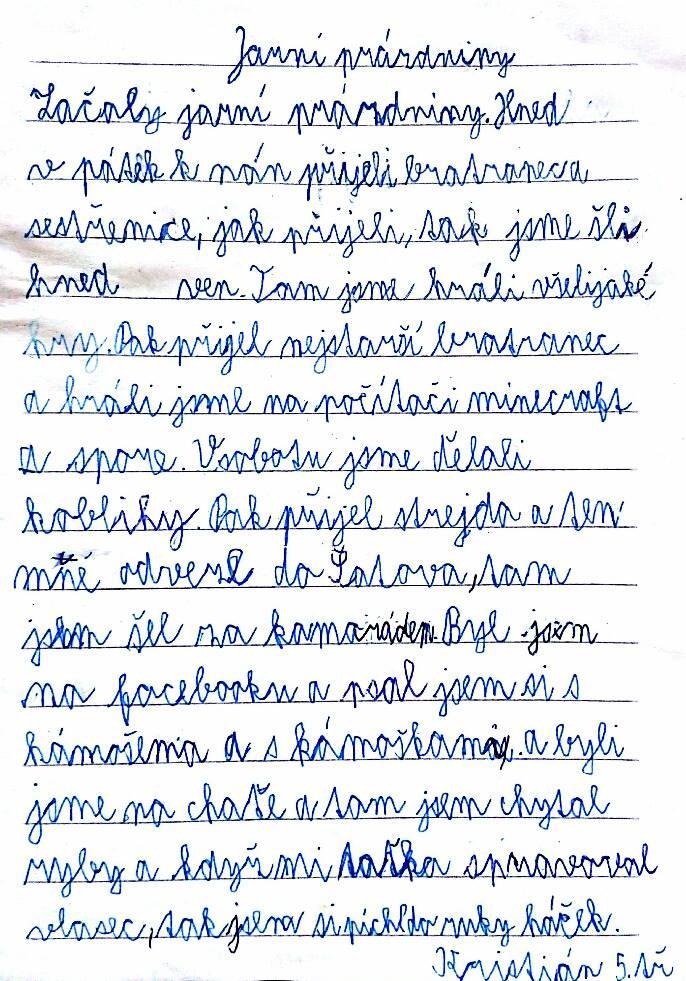 Jarní prázdniny
Začaly jarní prázdniny. Hned
v pátek k nán přijeli bratranec a
sestřenice, jak přijeli, tak jsme šli
hned ven. Tam jsme hráli všelijaké
hry. Pak přijel nejstarší bratranec
a hráli jsme na počítači minecraft
a spore. V sobotu jsme dělali
koblihy. Pak přijel strejda a ten
mně odvezl do Šatova, tam
jsem šel za kamarádem. Byl jsem
na facebooku a psal jsem si s
kámošema a s kámoškama, a byli
jsme na chatě a tam jsem chytal
ryby a když mi taťka spravoval
vlasec, tak jsem si píchl do ruky háček.
Kristián 5.tř